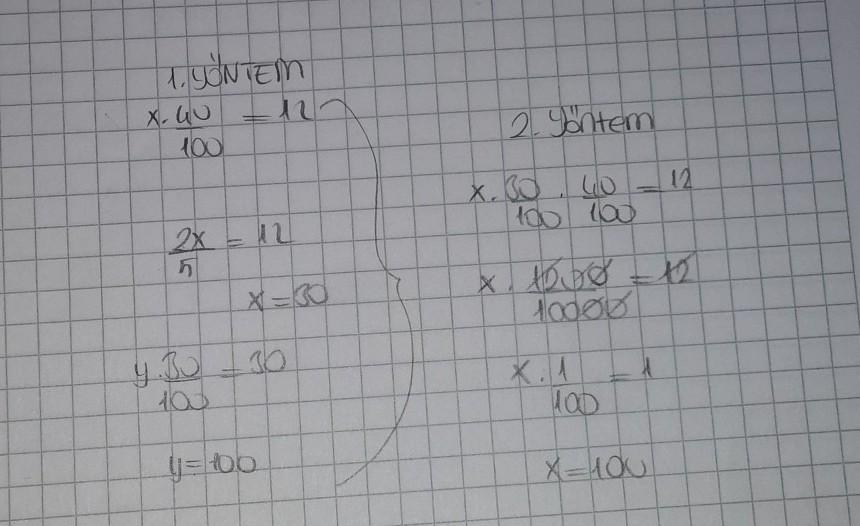 1. YÖNTEM
x. 40/100 = 12
2x/5 = 12
x = 30
y. 30/100 = 30
y = 100
2. Yöntem
x. 30/100 . 40/100 = 12
x. 1200/10000 = 12
x. 1/100 = 1
x = 100